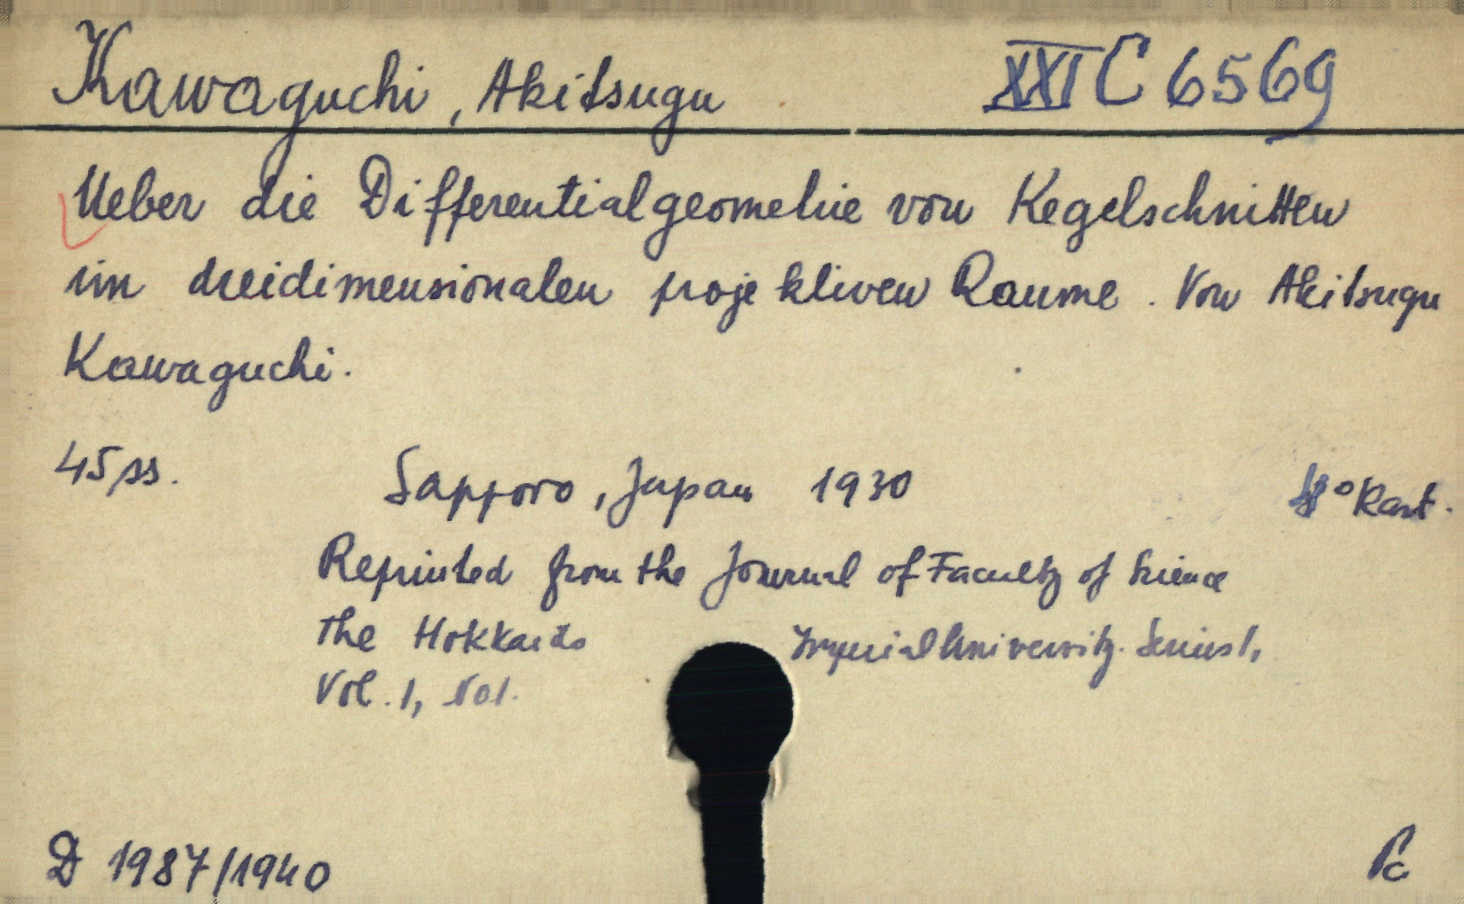 Kawaguchi, Akitsugu XXI C 6569
Ueber die Differentialgeometrie von Kegelschnitten
im dreidimensionalen projektiven Raume. Von Akitsugu
Kawaguchi.
45 ss. Sapporo, Japan 1930 8° Kart.
Reprinted from the Journal of Faculty of Science
the Hokkaido Imperial University. Series I,
Vol. 1, No 1.
D 1987/1940